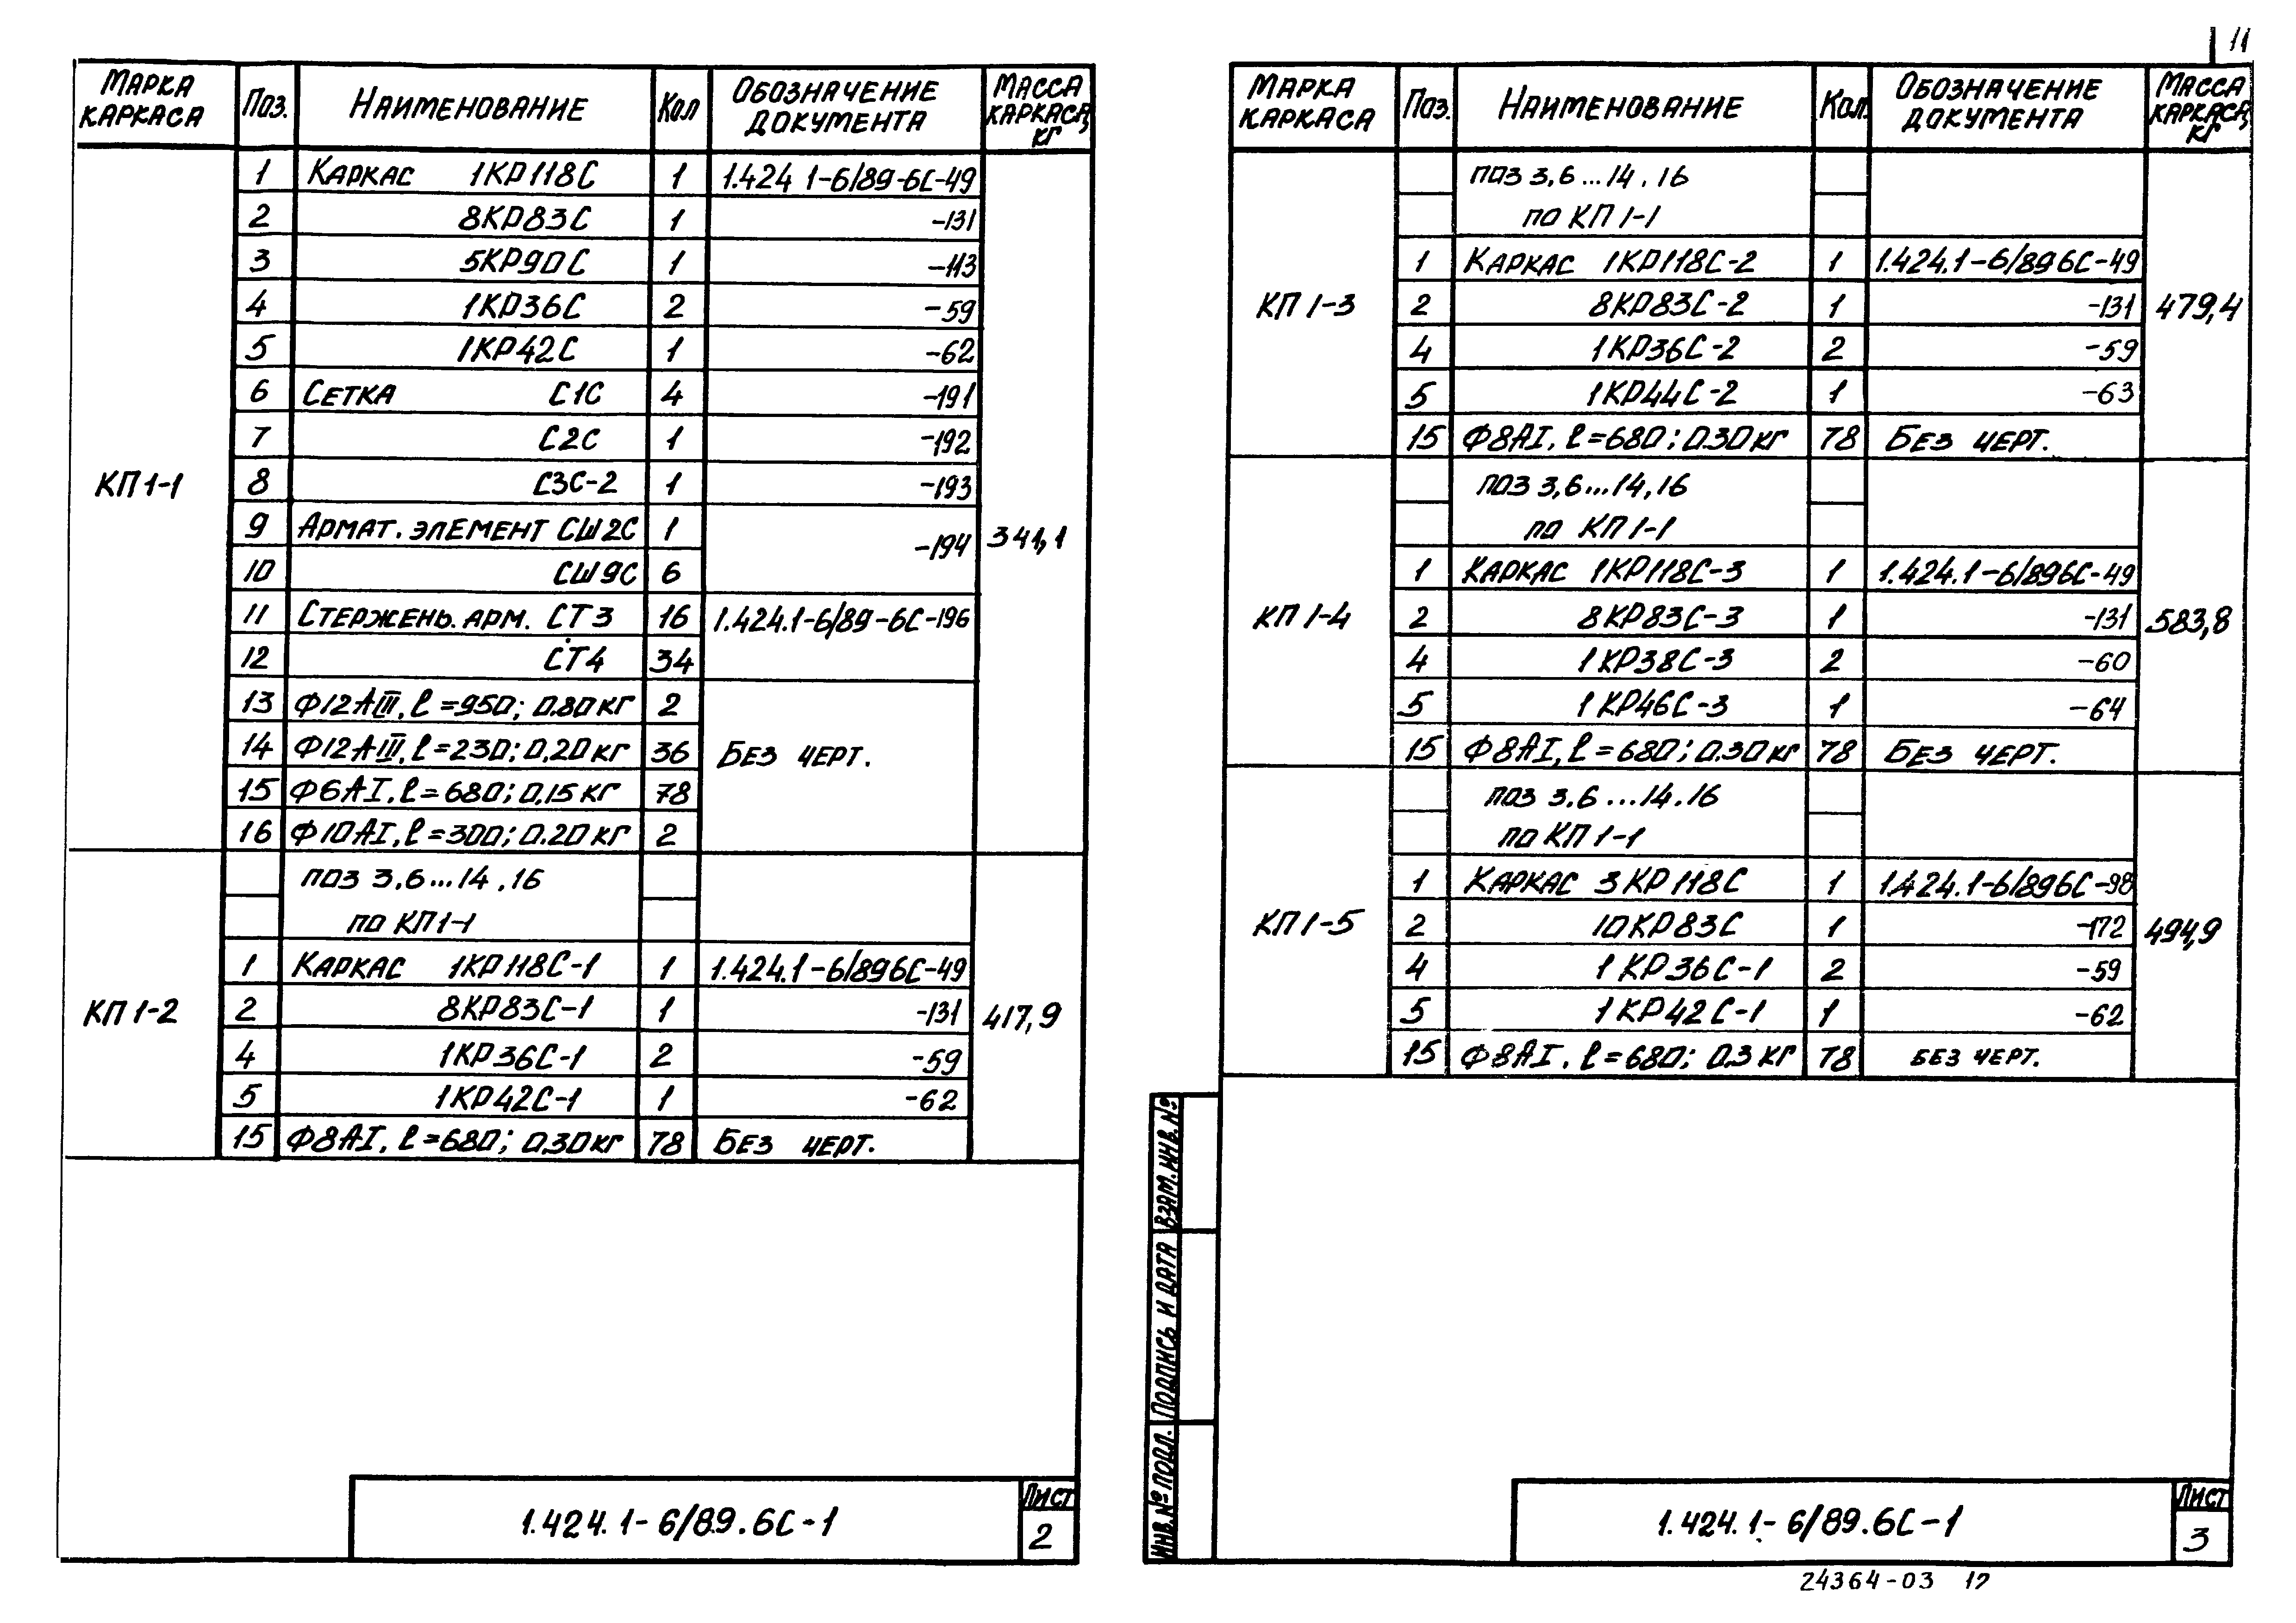 11
Марка каркаса Поз. Наименование Кол Обозначение документа Масса каркаса, кг
КП 1-1 341,1
1 Каркас 1КР118С 1 1.424 1-6/89-6С-49
2 8КР83С 1 -131
3 5КР90С 1 -113
4 1КР36С 2 -59
5 1КР42С 1 -62
6 Сетка С1С 4 -191
7 С2С 1 -192
8 С3С-2 1 -193
9 Армат. элемент СШ2С 1 -194
10 СШ9С 6
11 Стержень. арм. СТ3 16 1.424.1-6/89-6С-196
12 СТ4 34
13 Ф12АIII, ℓ=950; 0.80кг 2
14 Ф12АIII, ℓ=230; 0,20кг 36 Без черт.
15 Ф6АI, ℓ=680; 0,15 кг 78
16 Ф10АI, ℓ=300; 0.20кг 2
поз 3,6...14,16
по КП1-1
1 Каркас 1КР118С-1 1 1.424.1-6/896С-49
КП 1-2 2 8КР83С-1 1 -131 417,9
4 1КР36С-1 2 -59
5 1КР42С-1 1 -62
15 Ф8АI, ℓ=680; 0.30кг 78 Без черт.
1.424.1-6/89.6С-1
Лист
2
Марка каркаса Поз. Наименование Кол. Обозначение документа Масса каркаса, кг
поз 3,6...14,16
по КП 1-1
1 Каркас 1КР118С-2 1 1.424.1-6/896С-49
КП 1-3 2 8КР83С-2 1 -131 479,4
4 1КР36С-2 2 -59
5 1КР44С-2 1 -63
15 Ф8АI, ℓ=680; 0.30кг 78 Без черт.
поз 3,6...14,16
по КП 1-1
1 Каркас 1КР118С-3 1 1.424.1-6/896С-49
КП 1-4 2 8КР83С-3 1 -131 583,8
4 1КР38С-3 2 -60
5 1КР46С-3 1 -64
15 Ф8АI, ℓ=680; 0.30кг 78 Без черт.
поз 3.6...14.16
по КП 1-1
1 Каркас 3КР118С 1 1.424.1-6/896С-98
КП 1-5 2 10КР83С 1 -172 494,9
4 1КР36С-1 2 -59
5 1КР42С-1 1 -62
15 Ф8АI, ℓ=680; 0.3 кг 78 без черт.
Инв. № подл. Подпись и дата Взам. инв. №
1.424.1-6/89.6С-1
Лист
3
24364-03 12